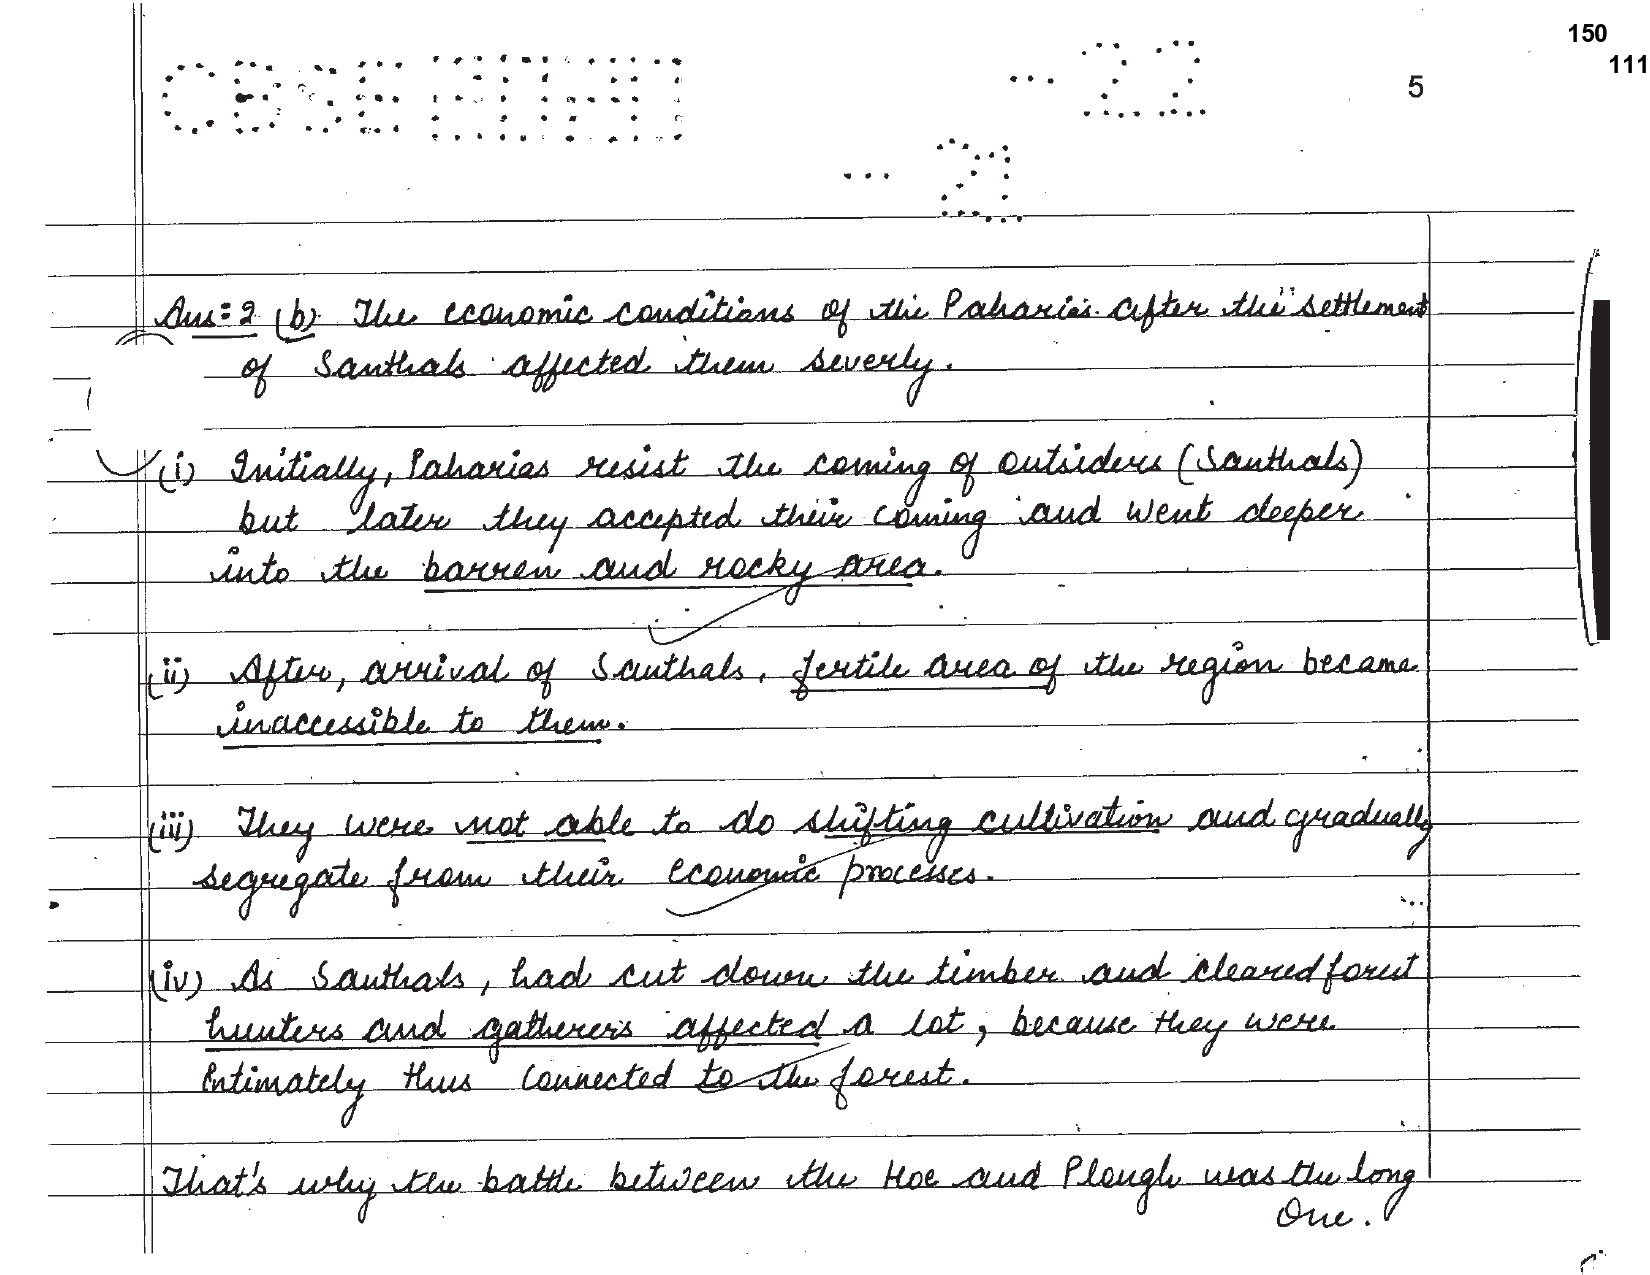 150
111
CBSE
- 22
5
- 21
Ans:2 (b) The economic conditions of the Paharias after the settlement
of Santhals affected them severly.
(i) Initially, Paharias resist the coming of outsiders (Santhals)
but later they accepted their coming and went deeper
into the barren and rocky area.
(ii) After, arrival of Santhals, fertile area of the region became
inaccessible to them.
(iii) They were not able to do shifting cultivation and gradually
segregate from their economic processes.
(iv) As Santhals, had cut down the timber and cleared forest
hunters and gatherers affected a lot, because they were
intimately thus connected to the forest.
That's why the battle between the Hoe and Plough was the long
One.